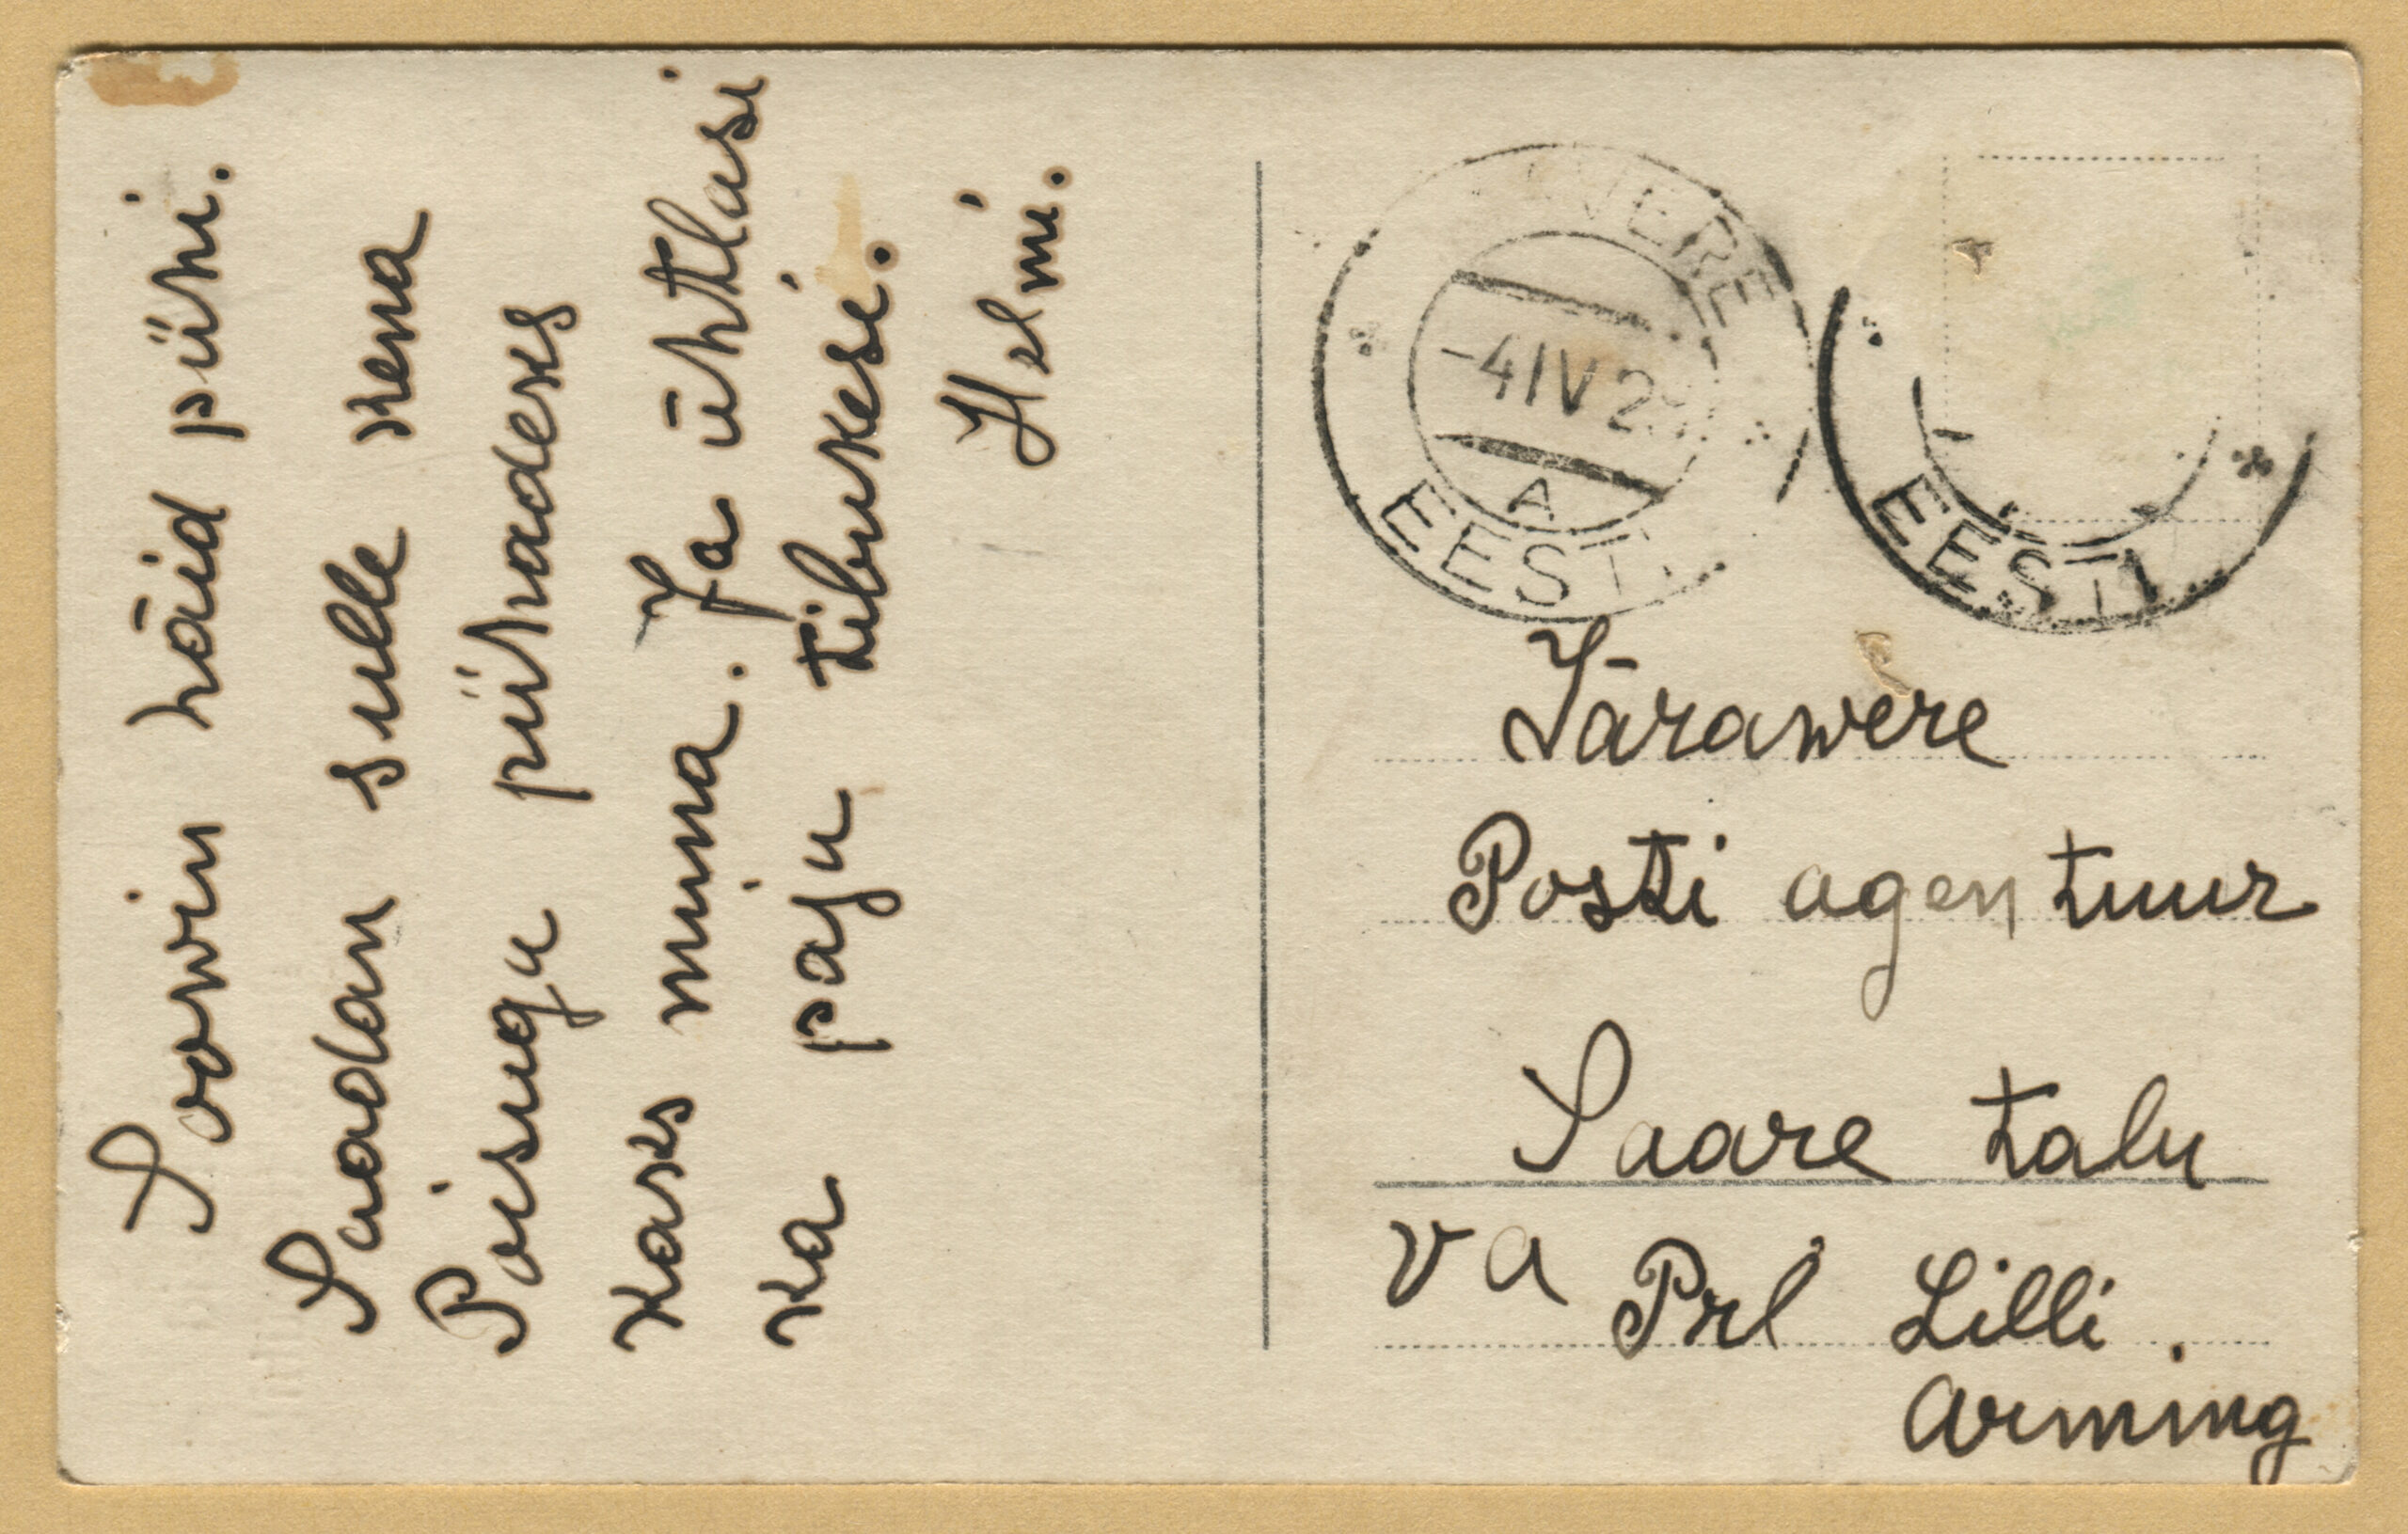 Soowin häid pühi.
Saadan sulle nena
Poisuga pühadeks
Kaks muna. Ja ühtlasi
ka paju tibukesi.
Helmi.
VERE
-4 IV 2
A
EESTI
EESTI
Järawere
Posti agentuur
Saare talu
va
Prl Lilli.
Arming